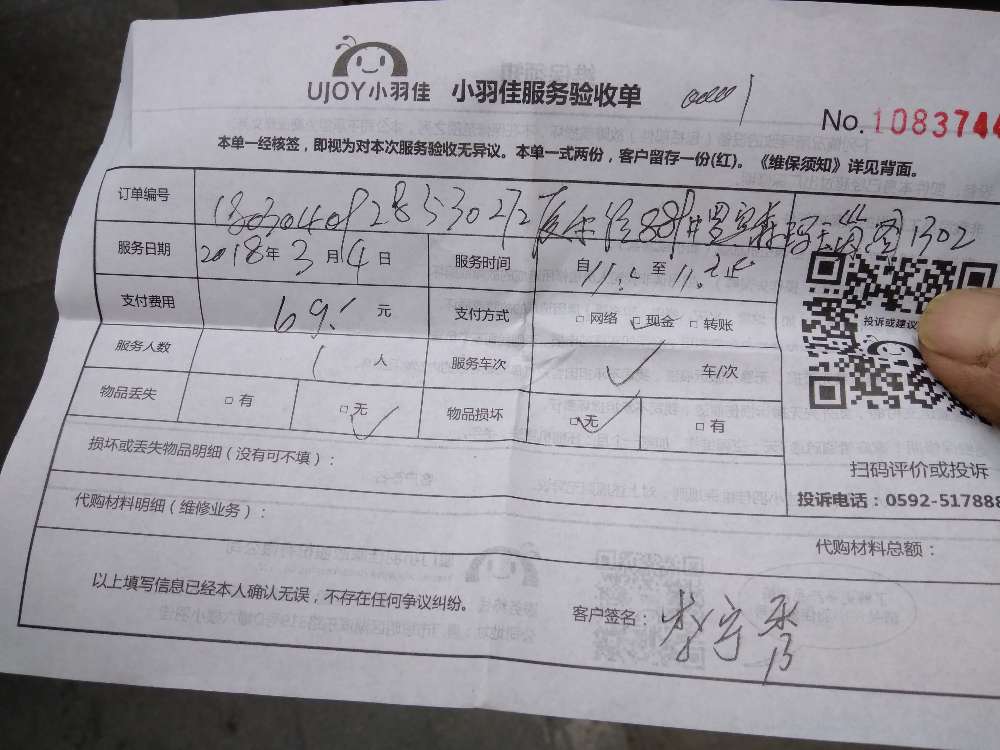 UJOY小羽佳 小羽佳服务验收单
No.1083744
本单一经核签，即视为对本次服务验收无异议。本单一式两份，客户留存一份(红)。《维保须知》详见背面。
订单编号 1302
服务日期 2018年3月4日 服务时间 自11: 至11:
支付费用 69. 元 支付方式 □网络 □现金 □转账
投诉或建议
服务人数 1 人 服务车次 车/次
物品丢失 □有 □无 物品损坏 □无 □有
损坏或丢失物品明细（没有可不填）：
扫码评价或投诉
投诉电话：0592-517888
代购材料明细（维修业务）：
代购材料总额：
以上填写信息已经本人确认无误，不存在任何争议纠纷。
客户签名：